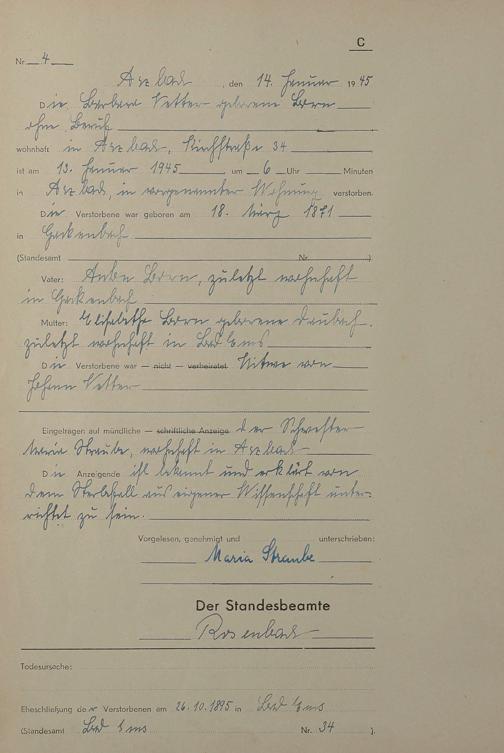 C
Nr. 4
Arzbach, den 14. Januar 1945
Die Barbara Vetter geborene Born
ohne Beruf
wohnhaft in Arzbach, Kirchstraße 34
ist am 13. Januar 1945 um 6 Uhr Minuten
in Arzbach, in vorgenannter Wohnung verstorben.
Die Verstorbene war geboren am 18. März 1871
in Gackenbach
(Standesamt Nr. )
Vater: Born, zuletzt wohnhaft
in Gackenbach
Mutter: Elisabetha Born geborene Daubach,
zuletzt wohnhaft in Bad Ems
Die Verstorbene war — nicht — verheiratet Witwe von
Johann Vetter
Eingetragen auf mündliche — schriftliche Anzeige der Schwester
Maria Straube, wohnhaft in Arzbach
Die Anzeigende ist bekannt und erklärt von
dem Sterbefall aus eigener Wissenschaft unter-
richtet zu sein.
Vorgelesen, genehmigt und unterschrieben:
Maria Straube
Der Standesbeamte
Rosenbach
Todesursache:
Eheschließung der Verstorbenen am 26.10.1895 in Bad Ems
(Standesamt Bad Ems Nr. 34 ).